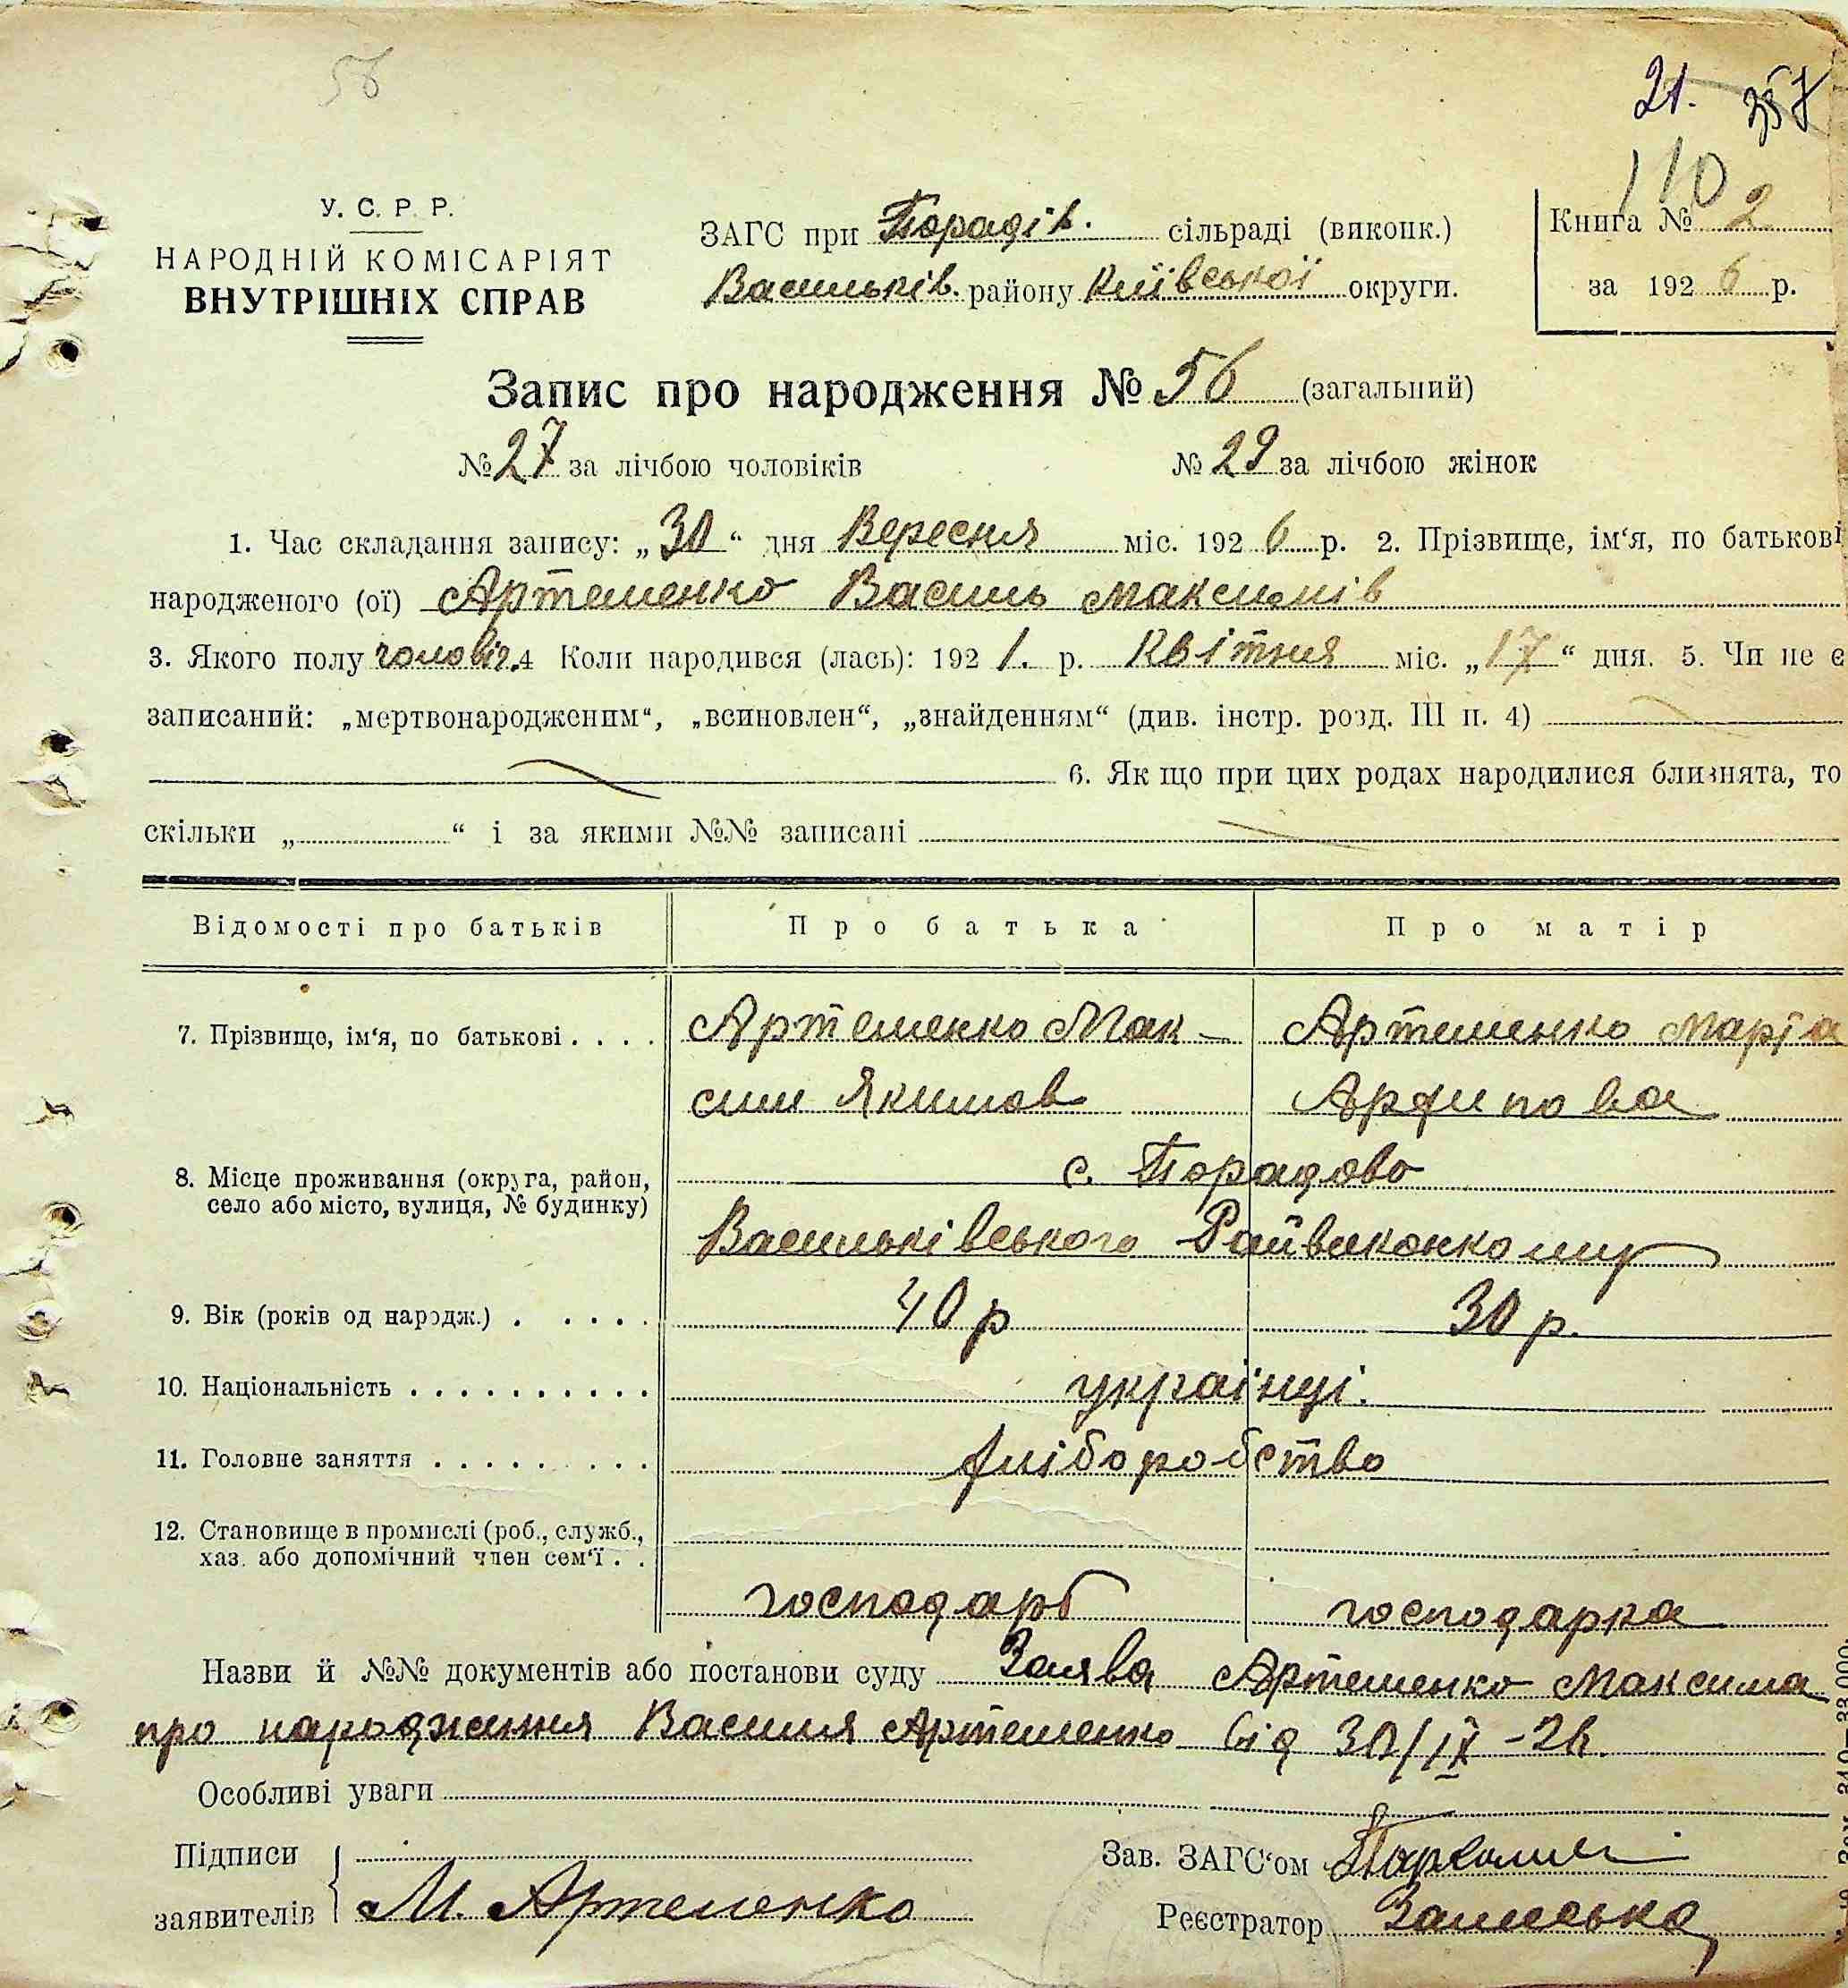 56
21. 257
110
У. С. Р. Р.
НАРОДНІЙ КОМІСАРІЯТ
ВНУТРІШНІХ СПРАВ
ЗАГС при Порадів. сільраді (виконк.)
Васильків. району Київської округи.
Книга № 2
за 1926 р.
Запис про народження № 56 (загальний)
№ 27 за лічбою чоловіків № 29 за лічбою жінок
1. Час складання запису: „30“ дня Вересня міс. 1926 р. 2. Прізвище, ім‘я, по батькові
народженого (ої) Артеменко Василь Максимів
3. Якого полу чоловіч. 4 Коли народився (лась): 1921. р. Квітня міс. „17“ дня. 5. Чи не є
записаний: „мертвонародженим“, „всиновлен“, „знайденням“ (див. інстр. розд. III п. 4)
6. Як що при цих родах народилися близнята, то
скільки „ “ і за якими №№ записані
Відомості про батьків Про батька Про матір
7. Прізвище, ім‘я, по батькові . . . . Артеменко Мак- Артеменко Марія
сим Якимов Архипова
8. Місце проживання (округа, район, с. Порадово
село або місто, вулиця, № будинку)
Васильківського Райвиконкому
9. Вік (років од народж.) . . . . . 40 р 30 р.
10. Національність . . . . . . . . . . українці.
11. Головне заняття . . . . . . . . . хліборобство
12. Становище в промислі (роб., служб.,
хаз. або допомічний член сем‘ї . .
господарь господарка
Назви й №№ документів або постанови суду Заява Артеменко Максима
про народження Василя Артеменко від 30/IX-26.
Особливі уваги
Підписи
заявителів М. Артеменко
Зав. ЗАГС‘ом
Реєстратор